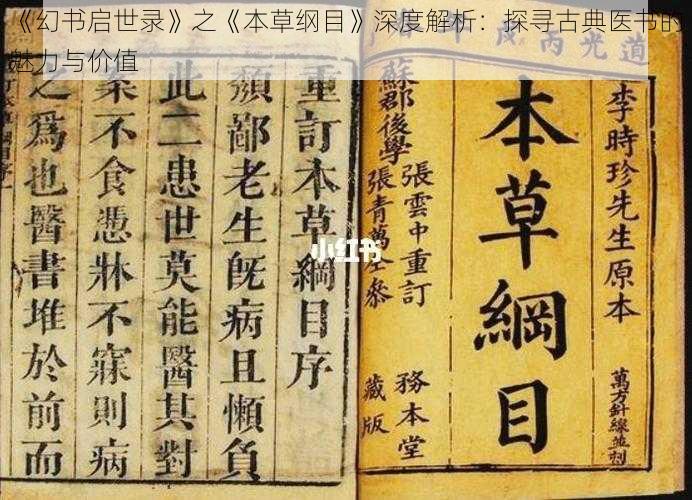 《幻书启世录》之《本草纲目》深度解析：探寻古典医书的
魅力与价值
道光丙戌
李時珍先生原本
萬方針線並刻
本草綱目
張雲中重訂
蘇郡後學
張青萬仝參
務本堂
藏版
重訂本草綱目序
頽鄙老生旣病且懶負
此二患世莫能醫其對
案不食憑牀不寐則病
之爲也醫書堆於前而
小红书